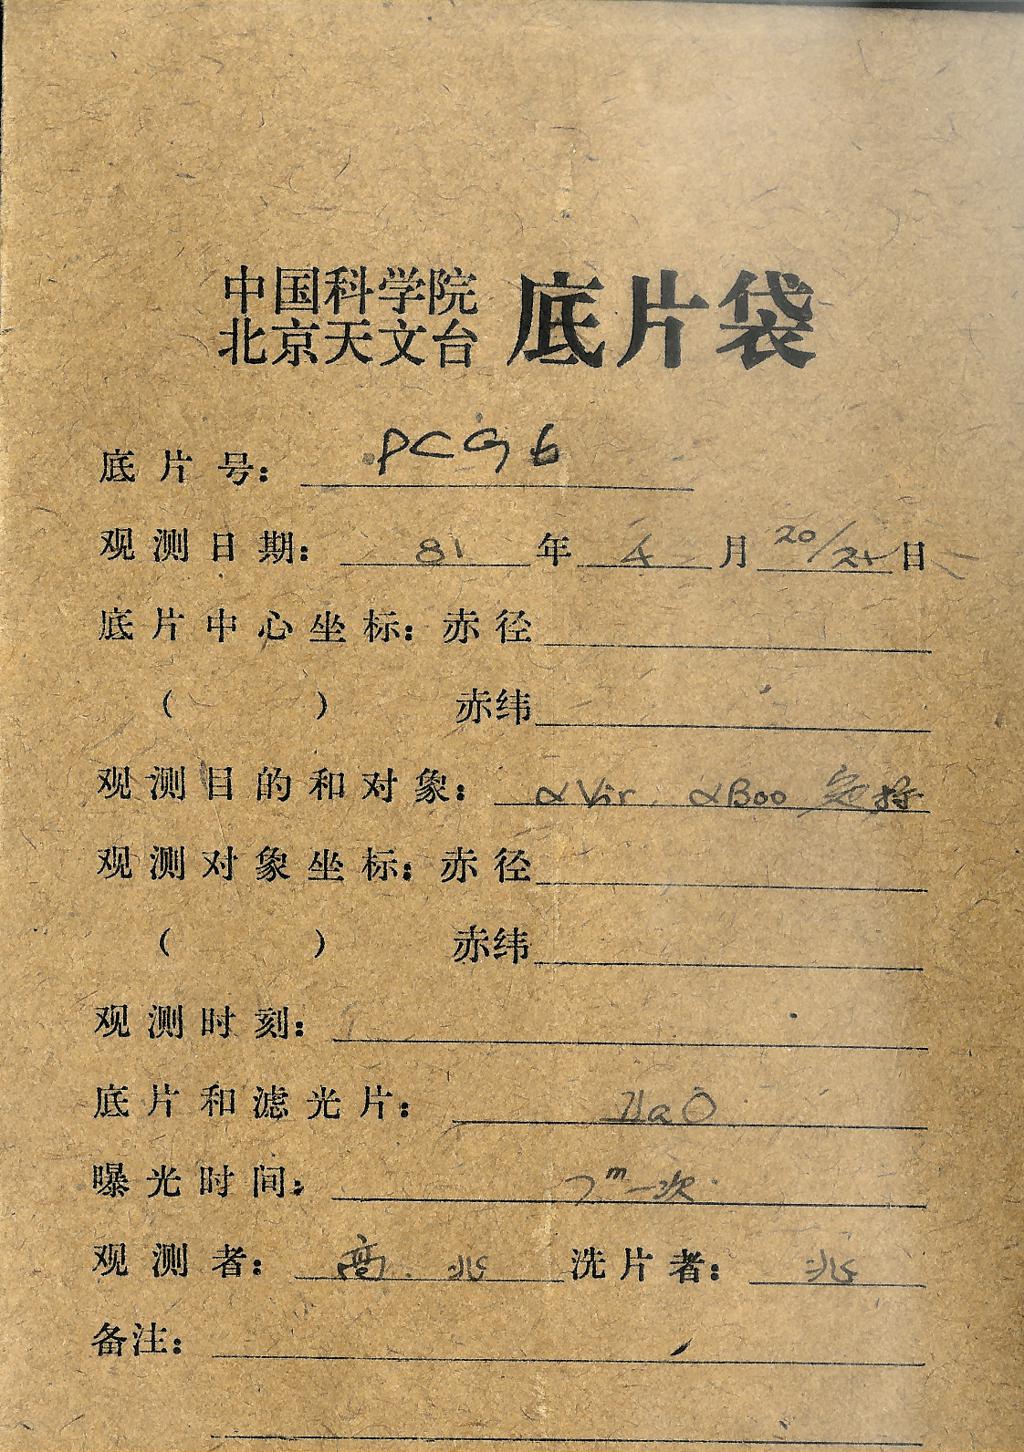 中国科学院
北京天文台 底片袋
底片号: PCG6
观测日期: 81年 4月 20/21日
底片中心坐标: 赤径
( ) 赤纬
观测目的和对象: αVir. αBoo 定标
观测对象坐标: 赤径
( ) 赤纬
观测时刻:
底片和滤光片: IIaO
曝光时间: 7m一次
观测者: 高. 洗片者:
备注: